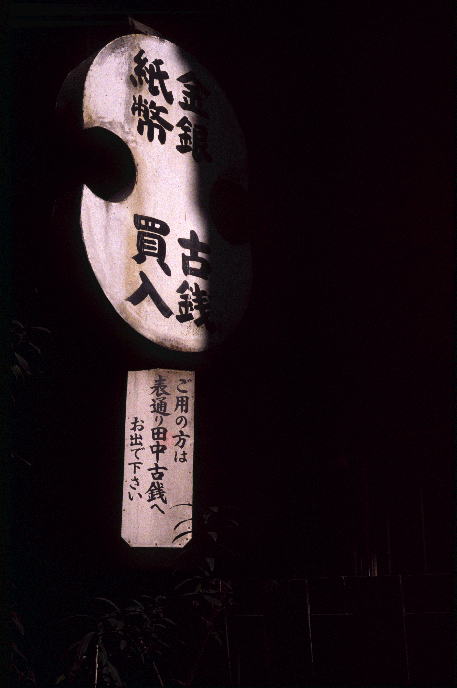 金銀 古銭
紙幣 買入
ご用の方は
表通り田中古銭へ
お出で下さい